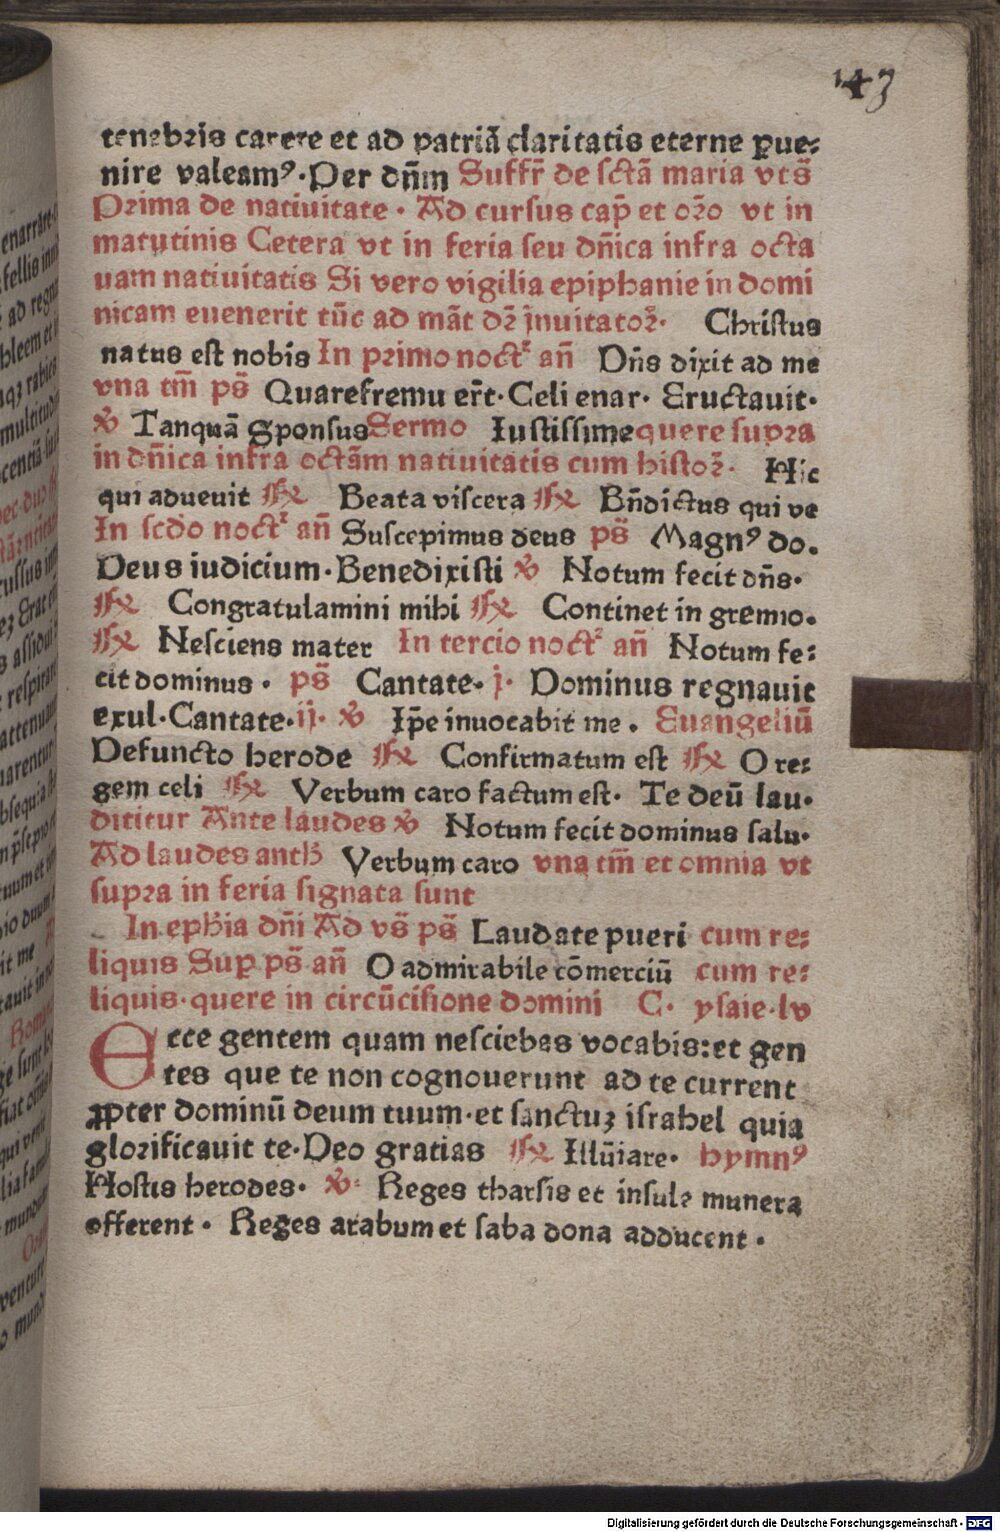 143
tenebris carere et ad patriã claritatis eterne ꝑue-
nire valeamꝰ·Per dñm Suffr̃ de sctã maria vts̃
Prima de natiuitate · Ad cursus cap̃ et oꝛo vt in
matutinis Cetera vt in feria seu dñica infra octa
uam natiuitatis Si vero vigilia epiphanie in domi
nicam euenerit tũc ad mãt dꝛ̃ jnuitatoꝛ̃· Christus
natus est nobis In primo noct᷑ añ Dñs dixit ad me
vna tm̃ ps̃ Quarefremu er̃t·Celi enar· Eructauit·
℣ Tanquã sponsus Sermo Iustissime quere supra
in dñica infra octãm natiuitatis cum histoꝛ̃· Hic
qui aduenit ℟ Beata viscera ℟ Bñdictus qui ve
In scdo noct᷑ añ Suscepimus deus ps̃ Magnꝰ do.
Deus iudicium·Benedixisti ℣ Notum fecit dñs·
℟ Congratulamini mihi ℟ Continet in gremio.
℟ Nesciens mater In tercio noct᷑ añ Notum fe-
cit dominus · ps̃ Cantate· j· Dominus regnauit
exul·Cantate·ij· ℣ Ip̃e inuocabit me . Euangeliũ
Defuncto herode ℟ Confirmatum est ℟ O re-
gem celi ℟ Verbum caro factum est· Te deũ lau·
dicitur Ante laudes ℣ Notum fecit dominus salu·
Ad laudes anth Verbum caro vna tm̃ et omnia vt
supra in feria signata sunt
In epħia dñi Ad vs̃ ps̃ Laudate pueri cum re-
liquis Suꝑ ps̃ añ O admirabile cõmerciũ cum re-
liquis·quere in circũcisione domini C· ysaie·lv
Ecce gentem quam nesciebas vocabis:et gen
tes que te non cognouerunt ad te current
ꝓpter dominũ deum tuum·et sanctuꝫ israhel quia
glorificauit te·Deo gratias ℟ Illũiare· hymnꝰ
Hostis herodes· ℣ Reges tharsis et insule munera
offerent · Reges arabum et saba dona adducent ·
Digitalisierung gefördert durch die Deutsche Forschungsgemeinschaft - DFG